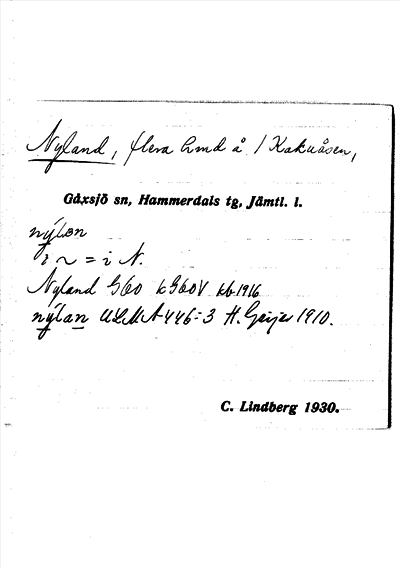 Nyland, flera hmd å / Kakuåsen,
Gåxsjö sn, Hammerdals tg, Jämtl. l.
nýlan
i ~ = i N.
Nyland G60 kG60V kb 1916
nýlan ULMA 446:3 H. Geijer 1910.
C. Lindberg 1930.